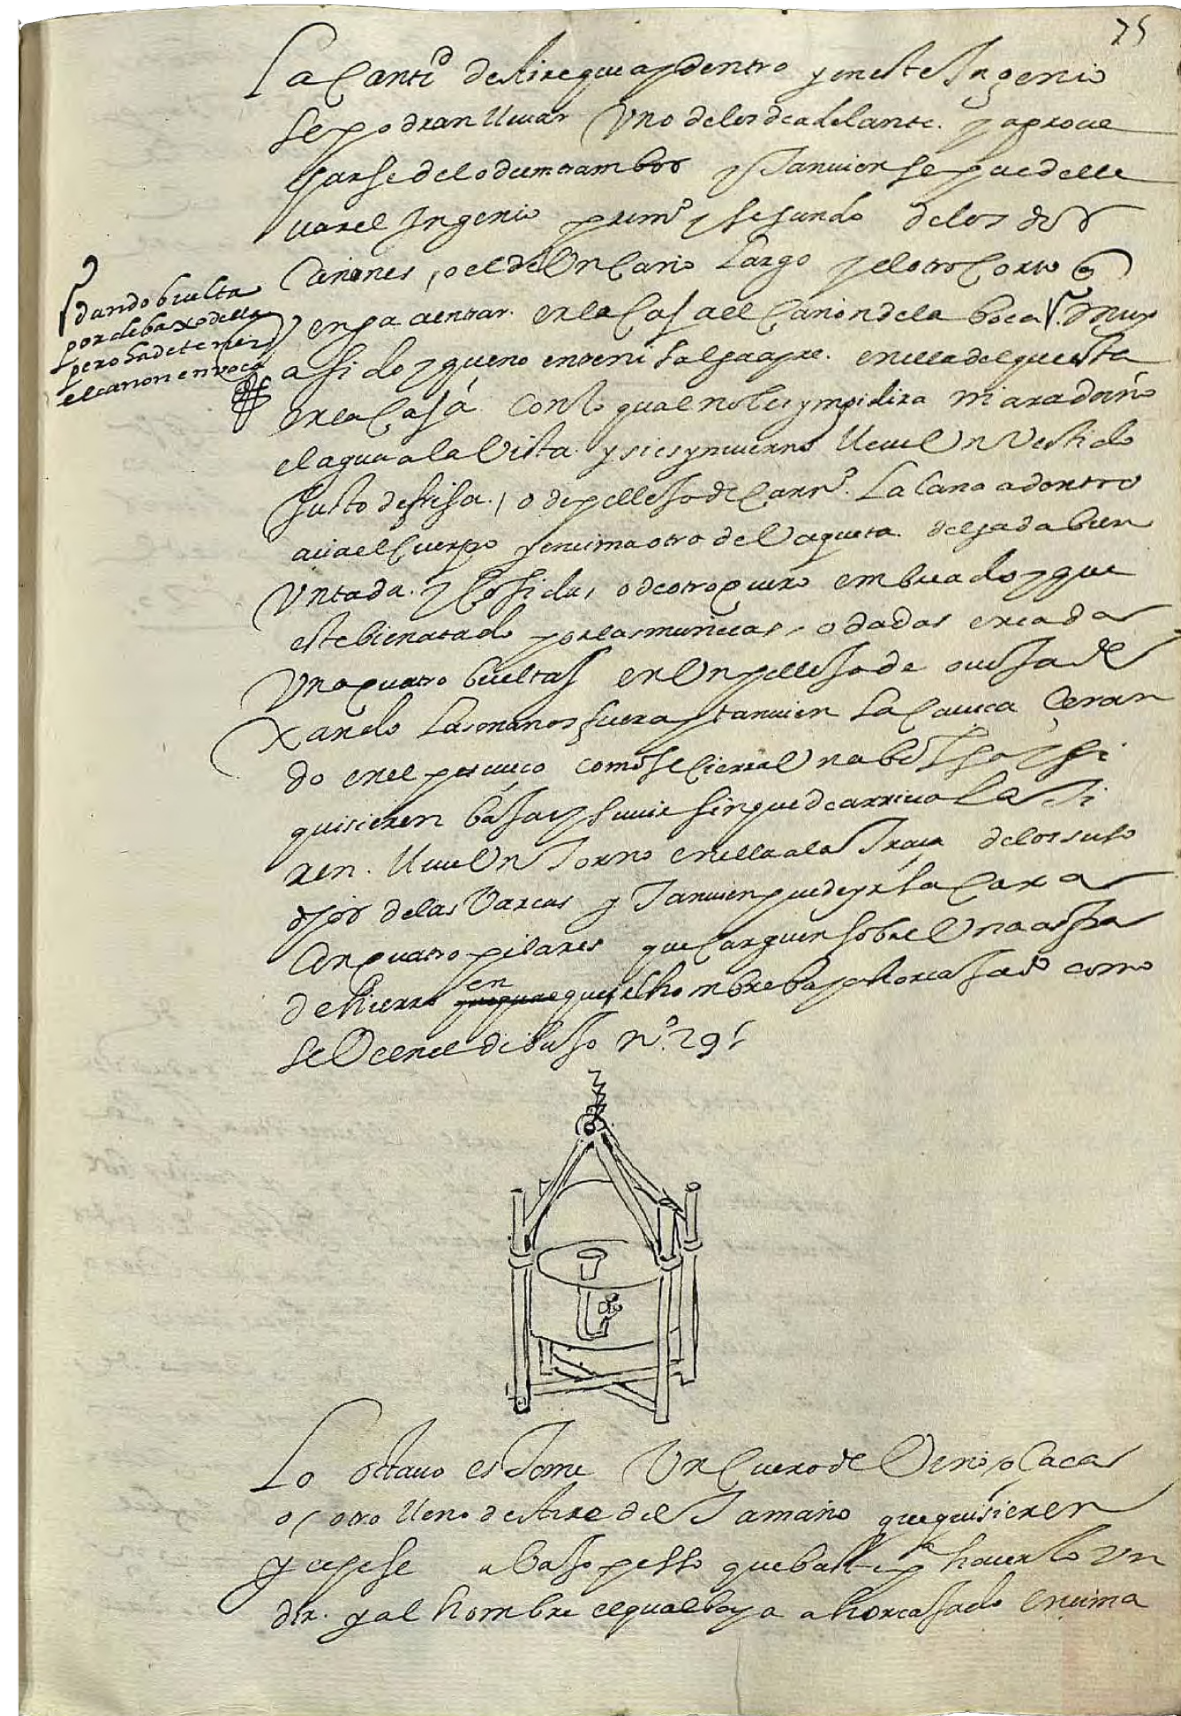 75
La Cantid de Aire que ay dentro y en este Ingenio
se podran lleuar Uno de los de adelante. y aproue
charse de lo de emtrambos y Tanuien se puede lle
uar el Ingenio primo y segundo de los dos
Cañones, o el de Un Caño Largo y el otro Corto q
benga a entrar en la Casa el Cañon de la boca muy
dando buelta
por debaxo della
pero ha de tener
el cañon en boca
asido y que no en salga ayre en ella del que esta
en la Casa. Con lo qual no les ympidira ni ara daño
el agua a la Vista y si es ynuierno lleue Un Vestido
Justo de frisa, o de pellejo de Carnro. La lana adentro
acia el Cuerpo y encima otro de Vaqueta delgada bien
Untada y Cosida, o de otro quero embreado y que
este bien atado por las muñecas, o dadas en cada
Una quatro bueltas en Un pellejo de oueja de
xando Las manos fuera y tanuien La Caueca Çeran
do en el pescueço como se Cierra Una bolsa y si
quisieren bajar y suuir sin que de arriua La ti
ren. lleue Un Torno en ella a la Traça de los
de las Varcas y Tanuien puede yr la Caxa
Con quatro pilares que Carguen sobre Una aspa
de hierro en que el hombre baya horcajado como
se Ve en el dibujo No. 29
Lo octauo es Tome Un Cuero de Vino, o Vaca
o otro lleno de Aire del Tamaño que quisieren
y a bajo pesso que baste pa hauerlo Un
dir. y al hombre el qual baya ahorcajado encima